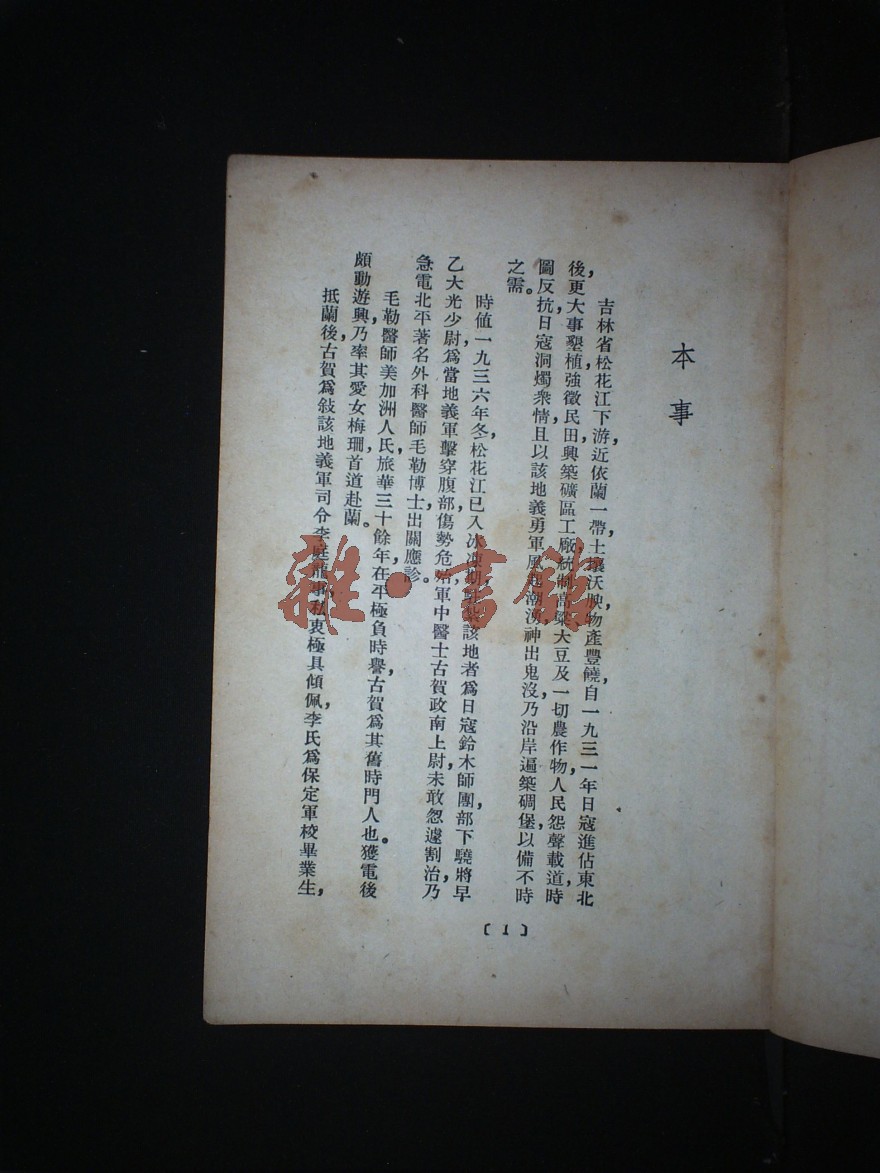 本事
吉林省松花江下游，近依蘭一帶，土壤沃腴，物產豐饒，自一九三一年日寇進佔東北
後，更大事墾植，強徵民田，興築礦區工廠，統制高粱大豆及一切農作物，人民怨聲載道，時
圖反抗，日寇洞燭衆情，且以該地義勇軍風起潮湧，神出鬼沒，乃沿岸遍築碉堡，以備不時
之需。
時值一九三六年冬，松花江已入冰凍期，該地者爲日寇鈴木師團，部下驍將早
乙大光少尉，爲當地義軍擊穿腹部，傷勢危殆，軍中醫士古賀政南上尉，未敢怱遽割治，乃
急電北平著名外科醫師毛勒博士出關應診。
毛勒醫師美加洲人氏，旅華三十餘年，在平極負時譽，古賀爲其舊時門人也。獲電後
頗動遊興，乃率其愛女梅珊首道赴蘭。
抵蘭後，古賀爲敍該地義軍司令李事，私衷極具傾佩，李氏爲保定軍校畢業生，
〔1〕
雜·書館